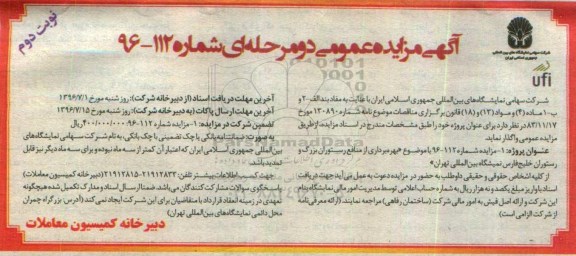 نوبت دوم
آگهی مزایده عمومی دو مرحله‌ای شماره ۱۱۲-۹۶
شرکت سهامی نمایشگاه‌های بین‌المللی
جمهوری اسلامی ایران
ufi
شرکت سهامی نمایشگاه‌های بین‌المللی جمهوری اسلامی ایران با عنایت به مفاد بند الف-۲ و
ب-۱ ماده (۴) و مواد (۱۲) و (۱۸) قانون برگزاری مناقصات موضوع نامه شماره ۱۳۰۸۹۰ مورخ
۸۳/۱۱/۱۷ در نظر دارد برای عنوان پروژه خود را طبق مشخصات مندرج در اسناد مزایده، از طریق
مزایده عمومی واگذار نماید.
عنوان پروژه: ۱-مزایده شماره ۱۱۲-۹۶ با موضوع «بهره‌برداری از مطبخ رستوران بزرگ و
رستوران خلیج فارس نمایشگاه بین‌المللی تهران»
از کلیه اشخاص حقوقی و حقیقی داوطلب به حضور در مزایده دعوت به عمل می‌آید جهت دریافت
اسناد با واریز مبلغ یکصد و نه هزار ریال به شماره حساب اعلامی توسط مدیریت امور مالی نمایشگاه بنام
این شرکت و ارائه اصل فیش به امور مالی شرکت (ساختمان رفاهی) مراجعه نمایند. (ارائه معرفی نامه
از شرکت الزامی است)
آخرین مهلت دریافت اسناد (از دبیرخانه شرکت): روز شنبه مورخ ۱۳۹۶/۷/۱
آخرین مهلت ارسال پاکات (به دبیرخانه شرکت): روز شنبه مورخ ۱۳۹۶/۷/۱۵
تضمین شرکت در مزایده: ۱-مزایده شماره ۱۱۲-۹۶: ۴۰۰/۰۰۰/۰۰۰ ریال
به صورت ضمانتنامه بانکی یا چک تضمینی یا چک بانکی به نام شرکت سهامی نمایشگاه‌های
بین‌المللی جمهوری اسلامی ایران که اعتبار آن کمتر از سه ماه نبوده و برای سه ماه دیگر نیز قابل
تمدید باشد.
جهت کسب اطلاعات بیشتر تلفن: ۲۱۹۱۲۸۳۲-۲۱۹۱۲۸۱۵ (دبیرخانه کمیسیون معاملات)
پاسخگوی سوالات مشارکت کنندگان می‌باشد. ضمنا ارسال اسناد و مدارک تکمیل شده هیچگونه
تعهدی در زمینه انعقاد قرارداد با متقاضیان برای این شرکت ایجاد نمی‌کند (آدرس: بزرگراه چمران
محل دائمی نمایشگاه‌های بین‌المللی تهران)
دبیرخانه کمیسیون معاملات